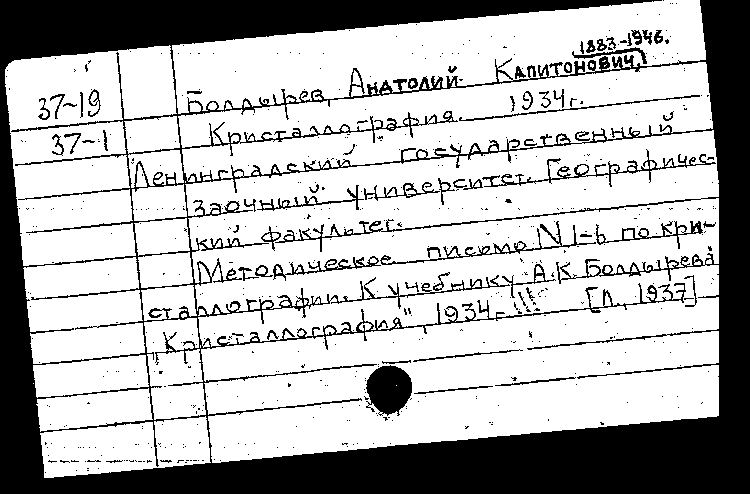 1883-1946.
37-19 Болдырев, Анатолий Капитонович,
37-1 Кристаллография. 1934г.
Ленинградский государственный
заочный университет. Географичес-
кий факультет.
Методическое письмо N 1-6 по кри-
сталлографии. К учебнику А.К. Болдырева
"Кристаллография", 1934.- [Л., 1937]